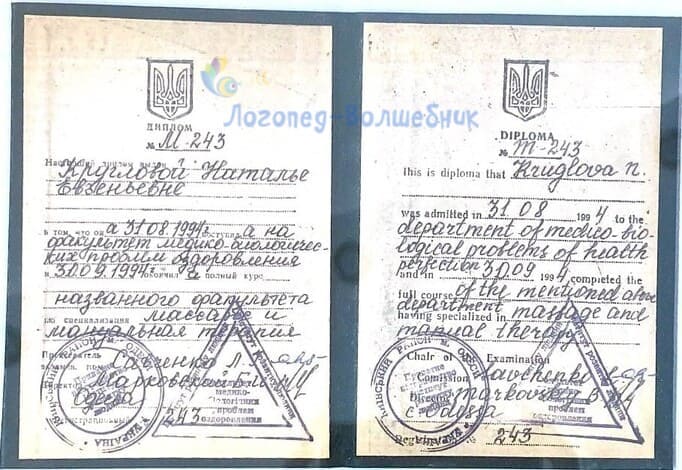 Логопед-Волшебник
ДИПЛОМ
№ М-243
Настоящий диплом выдан
Кругловой Наталье
Евгеньевне
в том, что он а 31 08 1994 г. поступил а на
факультет медико-биологичес-
ких проблем оздоровления
и 30.09.1994 г. окончил а полный курс
названного факультета
по специализации массаж и
мануальная терапия
Председатель
экзамен. Савченко Л.
Директор Марковский Б.
Одесса
243
медико-
проблем
оздоровления
DIPLOMA
№ m-243
This is diploma that Kruglova n.
was admitted in 31 08 1994 to the
department of medico-bio-
logical problems of health
perfection
and in 30 09 1994 completed the
full course of the mentioned above
department
having specialized in massage and
manual therapy
Chair of the Examination
Comission Savchenko
Director markovsky B.
c. Odessa
243